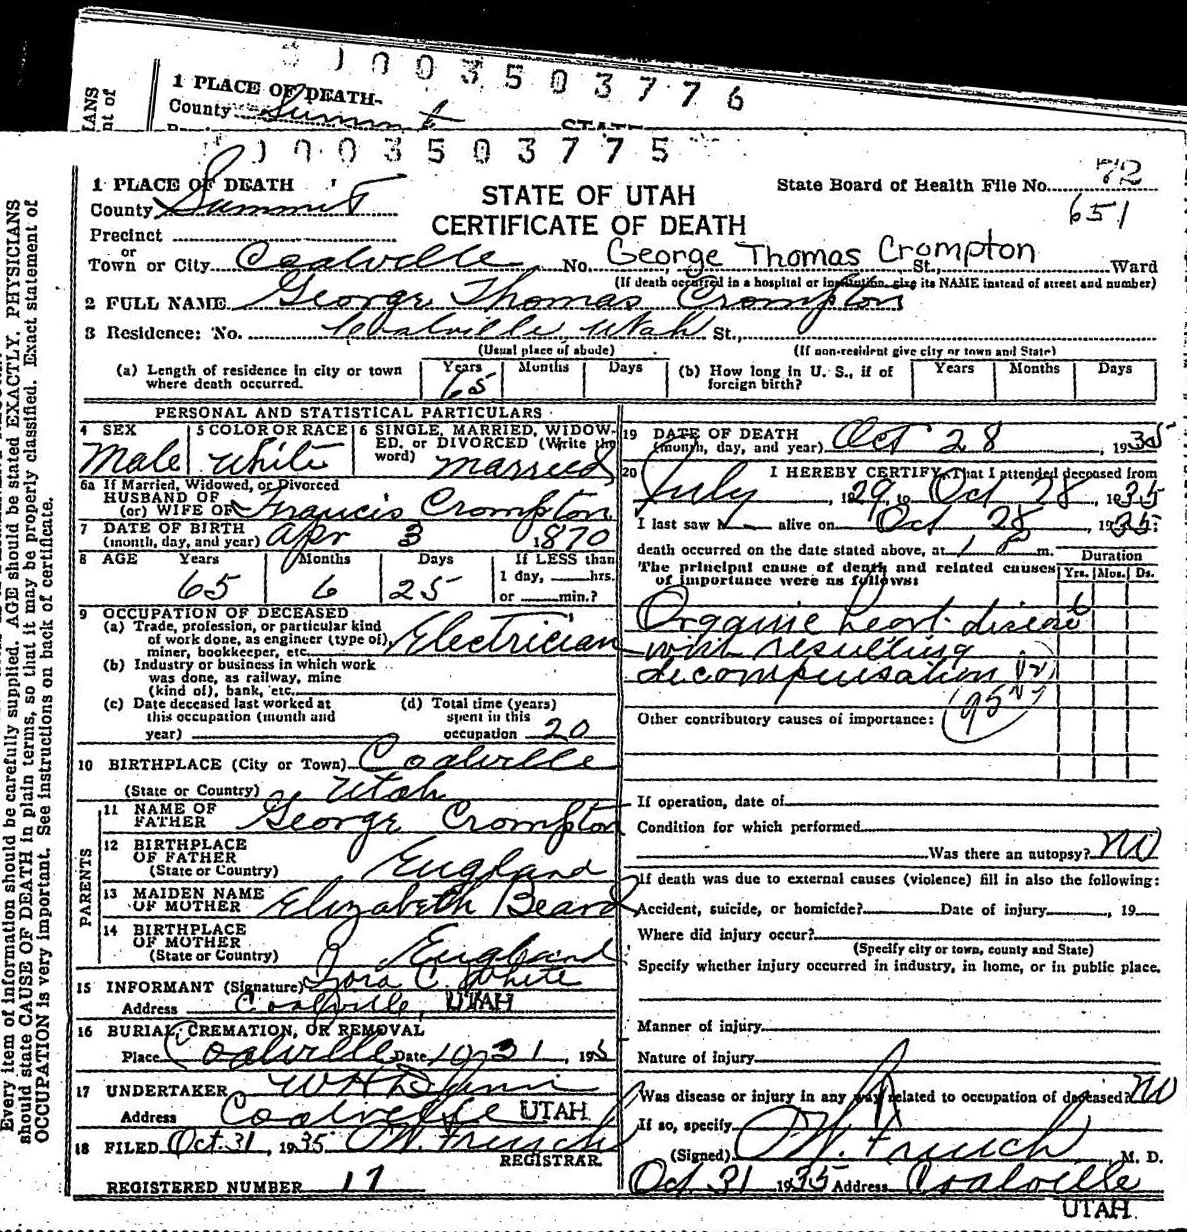 J 0 0 3 5 0 3 7 7 6
1 PLACE OF DEATH
County Summit
STATE
IANS
nt of
J 0 0 3 5 0 3 7 7 5
1 PLACE OF DEATH
County Summit
Precinct
or
Town or City Coalville No. George Thomas Crompton St., Ward
STATE OF UTAH
CERTIFICATE OF DEATH
State Board of Health File No. 72
651
(If death occurred in a hospital or institution, give its NAME instead of street and number)
2 FULL NAME George Thomas Crompton
3 Residence: No. Coalville Utah St.,
(Usual place of abode) (If non-resident give city or town and State)
(a) Length of residence in city or town where death occurred. Years 65 Months Days
(b) How long in U. S., if of foreign birth? Years Months Days
PERSONAL AND STATISTICAL PARTICULARS
4 SEX Male
5 COLOR OR RACE White
6 SINGLE, MARRIED, WIDOWED, or DIVORCED (Write the word) married
6a If Married, Widowed, or Divorced
HUSBAND OF
(or) WIFE OF Francis Crompton
7 DATE OF BIRTH
(month, day, and year) Apr 3 1870
8 AGE Years 65 Months 6 Days 25 If LESS than
1 day, hrs.
or min.?
9 OCCUPATION OF DECEASED
(a) Trade, profession, or particular kind
of work done, as engineer (type of),
miner, bookkeeper, etc. Electrician
(b) Industry or business in which work
was done, as railway, mine
(kind of), bank, etc.
(c) Date deceased last worked at
this occupation (month and
year)
(d) Total time (years)
spent in this
occupation 20
10 BIRTHPLACE (City or Town) Coalville
(State or Country) Utah
PARENTS
11 NAME OF
FATHER George Crompton
12 BIRTHPLACE
OF FATHER
(State or Country) England
13 MAIDEN NAME
OF MOTHER Elizabeth Beard
14 BIRTHPLACE
OF MOTHER
(State or Country) England
15 INFORMANT (Signature) Zora C. White
Address Coalville, UTAH
16 BURIAL, CREMATION, OR REMOVAL
Place Coalville Date 10 31, 1935
17 UNDERTAKER
Address Coalville UTAH
18 FILED Oct. 31, 1935
REGISTRAR.
REGISTERED NUMBER 17
19 DATE OF DEATH
(month, day, and year) Oct 28, 1935
20 I HEREBY CERTIFY, That I attended deceased from
July, 1929, to Oct 28, 1935
I last saw h alive on Oct 28, 1935;
death occurred on the date stated above, at 1 P m.
The principal cause of death and related causes
of importance were as follows:
Duration
Yrs. Mos. Ds.
Organic heart disease 6
with resulting
decompensation
Other contributory causes of importance:
If operation, date of
Condition for which performed
Was there an autopsy? NO
If death was due to external causes (violence) fill in also the following:
Accident, suicide, or homicide? Date of injury, 19
Where did injury occur?
(Specify city or town, county and State)
Specify whether injury occurred in industry, in home, or in public place.
Manner of injury
Nature of injury
Was disease or injury in any way related to occupation of deceased? NO
If so, specify
(Signed), M. D.
Oct. 31 1935 Address Coalville
UTAH
Every item of information should be carefully supplied. AGE should be stated EXACTLY. PHYSICIANS
should state CAUSE OF DEATH in plain terms, so that it may be properly classified. Exact statement of
OCCUPATION is very important. See instructions on back of certificate.